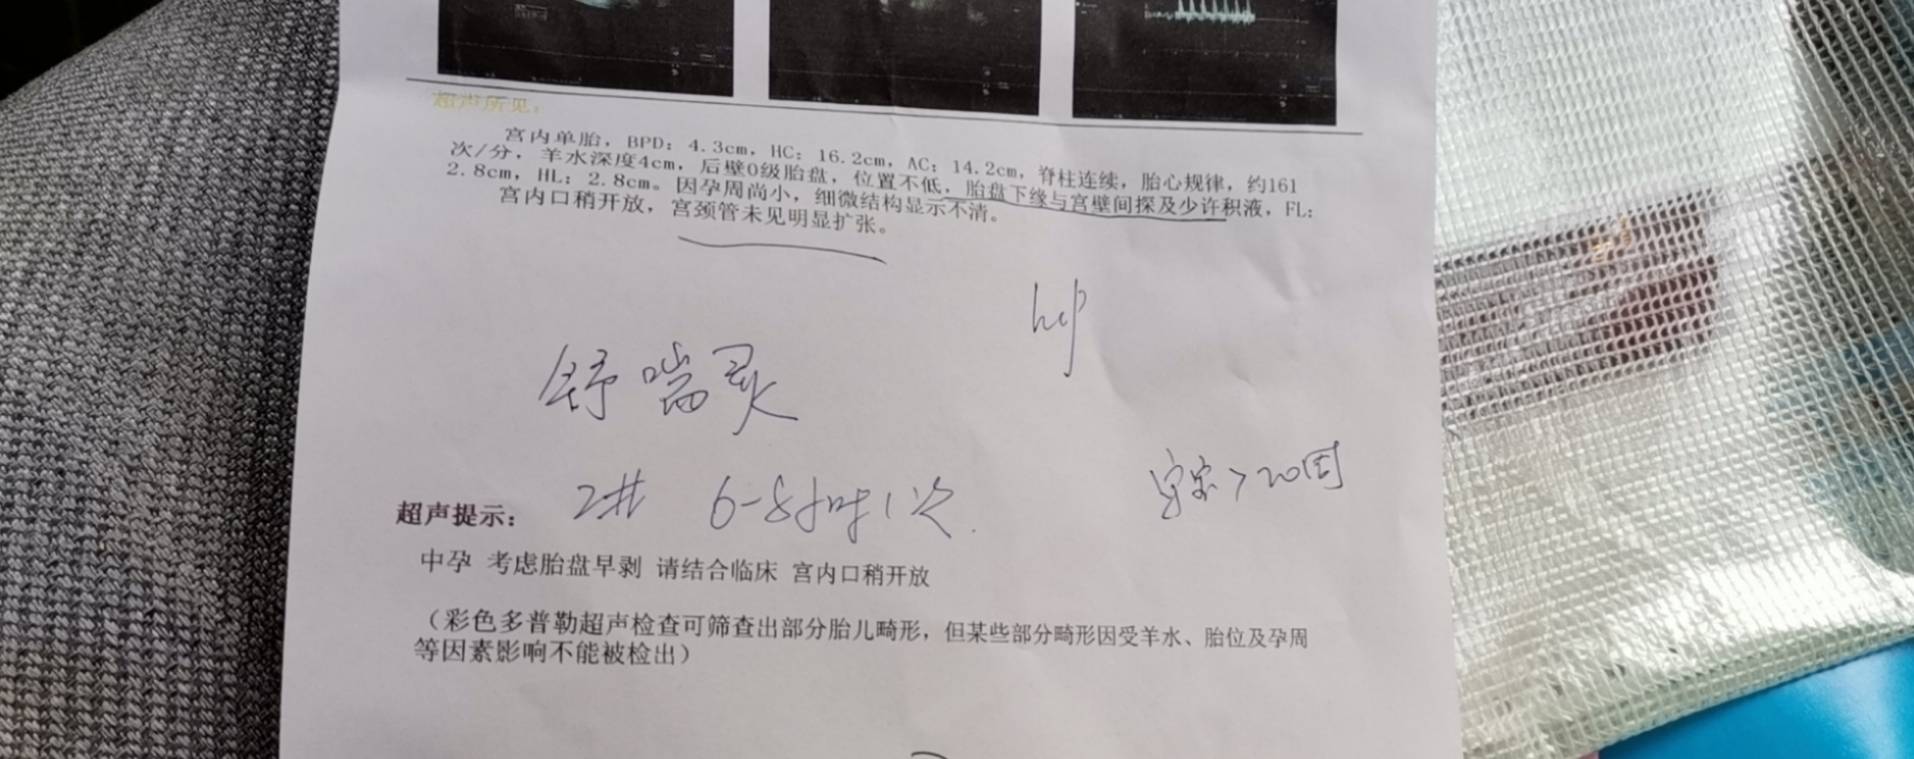 超声所见：
宫内单胎，BPD：4.3cm，HC：16.2cm，AC：14.2cm，脊柱连续，胎心规律，约161
次/分，羊水深度4cm，后壁0级胎盘，位置不低，胎盘下缘与宫壁间探及少许积液，FL：
2.8cm，HL：2.8cm。因孕周尚小，细微结构显示不清。
宫内口稍开放，宫颈管未见明显扩张。
舒喘灵
2# 6-8小时1次.
>20周
超声提示：
中孕 考虑胎盘早剥 请结合临床 宫内口稍开放
（彩色多普勒超声检查可筛查出部分胎儿畸形，但某些部分畸形因受羊水、胎位及孕周
等因素影响不能被检出）